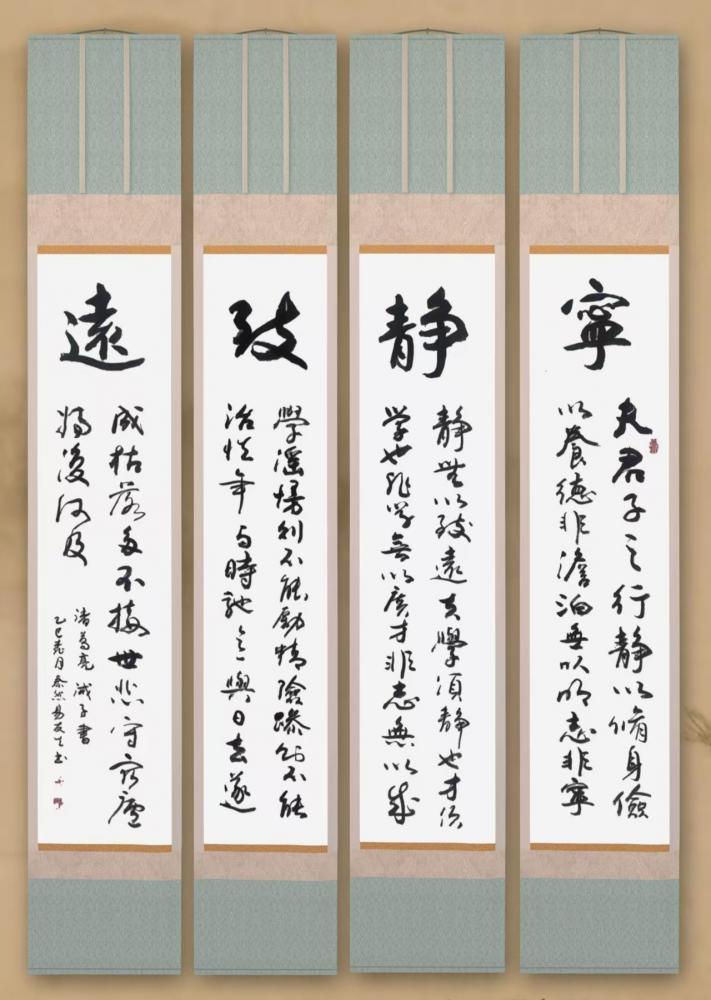 寧
夫君子之行静以脩身儉
以養德非澹泊無以明志非寧
静
静無以致遠夫學須静也才須
学也非学無以廣才非志無以成
致
學滛慢则不能勵精險躁则不能
治性年与時馳意與日去遂
遠
成枯落多不接世悲守窮廬
將復何及
諸葛亮 诫子書
乙巳月泰然易友生书